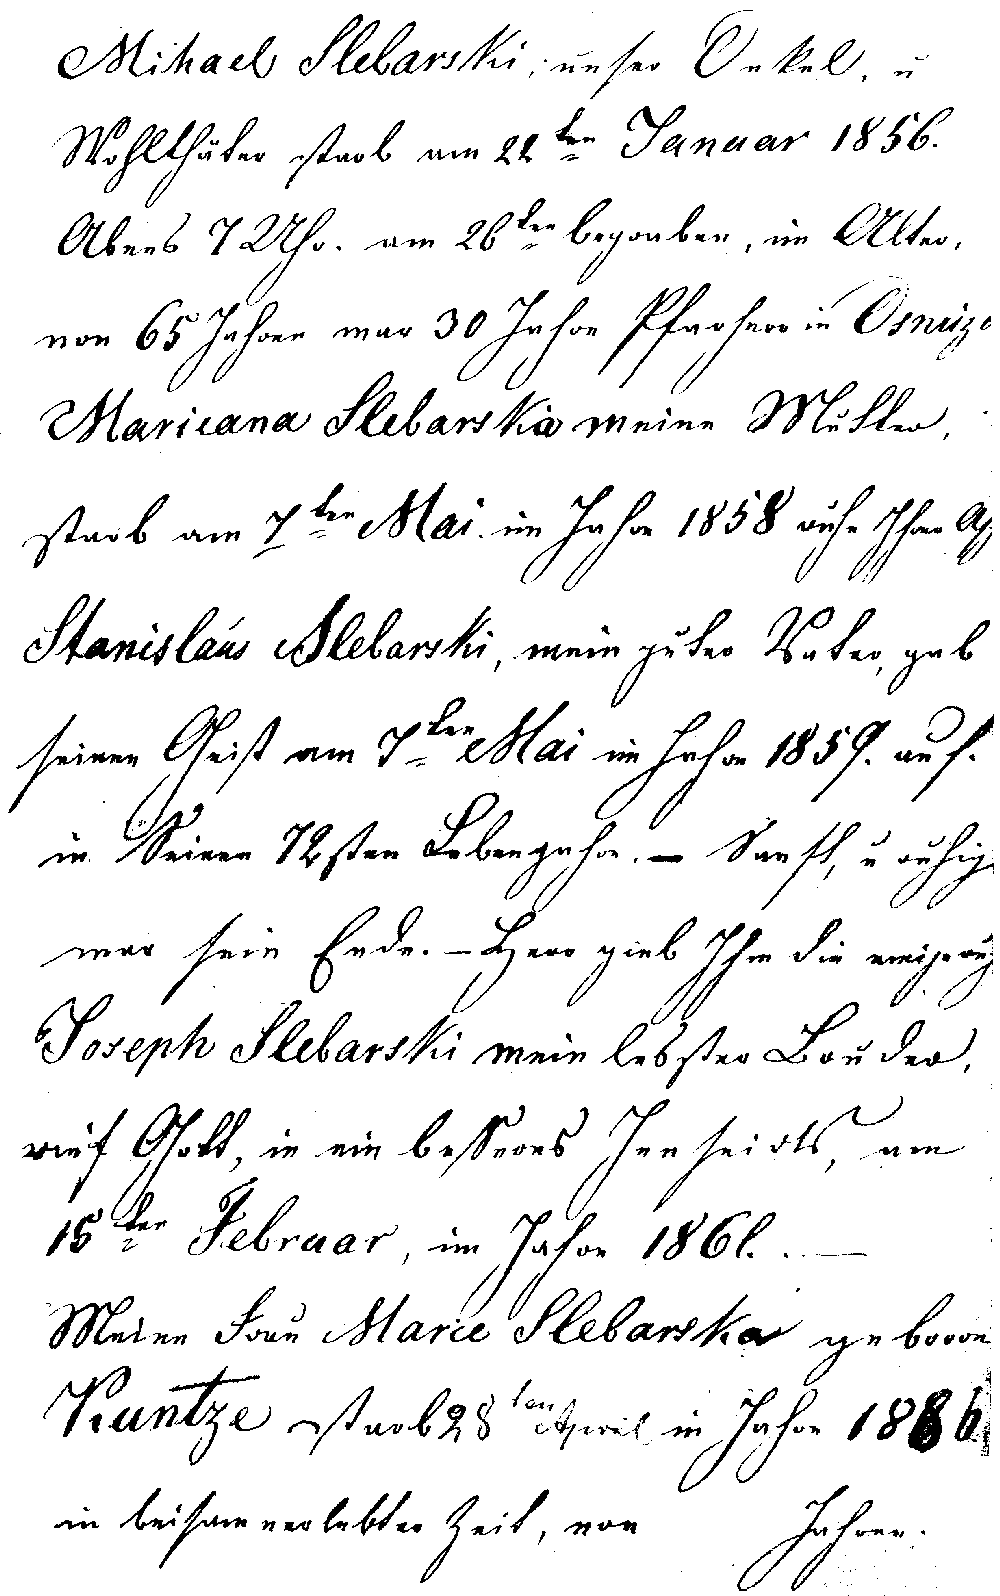 Mihael Slebarski, unser Onkel, u
Wohlthäter starb am 22ten Januar 1856.
Abens 7 Uhr. am 26ten begraben, im Alter,
von 65 Jahren war 30 Jahre Pfarherr in
Maricana Slebarska meine Mutter,
starb am 7ten Mai im Jahre 1858 ruhe Ihrer
Stanislaus Slebarski, mein guter Vater, gab
seinen Geist am 7ten Mai im Jahre 1859. auf.
in Seinen 72sten Lebengahre. – Sanft, u ruhig
war sein Ende. – Herr gieb Ihm die ewige
Joseph Slebarski mein lebster Bruder,
rief Gott, in ein besseres Jenseits, am
15ten Februar, im Jahre 1861. . —
Meine Frau Marie Slebarska geborne
Kuntze starb 28ten April in Jahre
in beisamverlebter Zeit, von Jahren.